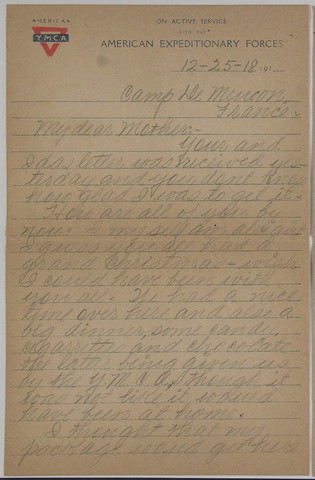 AMERICAN
YMCA
ON ACTIVE SERVICE
WITH THE
AMERICAN EXPEDITIONARY FORCES
12-25-18 191
Camp De Meucon,
France.
My dear Mother:-
Your and
Idas letter was received yes-
terday and you dont know
how glad I was to get it.
How are all of you by
now. I myself am alright
I guess you all had a
grand Christmas - wish
I could have been with
you all. We had a nice
time over here and also a
big dinner, some candy,
cigarettes and chocolate
the latter being given us
by the Y.M.C.A. though it
was not like it would
have been at home.
I thought that my
package would get here